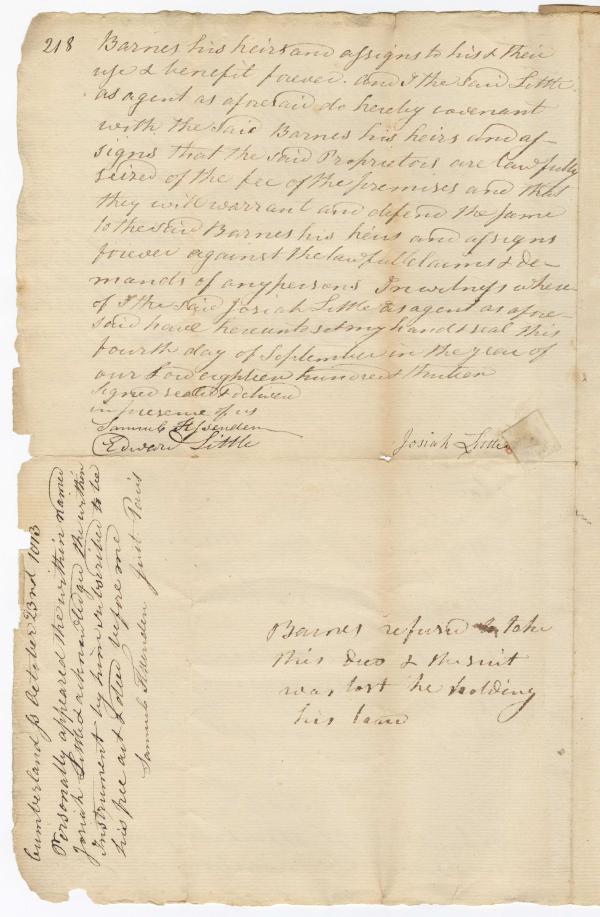 218 Barnes his heirs and assigns to his & their
use & benefit forever. and I the said Little
as agent as aforesaid do hereby covenant
with the said Barnes his heirs and as-
signs that the said Proprietors are lawfully
seized of the fee of the premises and that
they will warrant and defend the same
to the said Barnes his heirs and assigns
forever against the lawfull claims & de-
mands of any persons In witness where
of I the said Josiah Little as agent as afore-
said have hereunto set my hand & seal this
fourth day of September in the year of
our Lord eighteen hundred thirteen
Signed sealed & delivered
in presence of us
Samuel Fessenden
Edward Little
Josiah Little
Cumberland ss October 23nd 1813
Personally appeared the within named
Josiah Little & acknowledged the within
Instrument by him subscribed to be
his free act & deed before me
Samuel Fessenden Just Pacis
Barnes refused to take
this deed & the suit
was lost he holding
his land